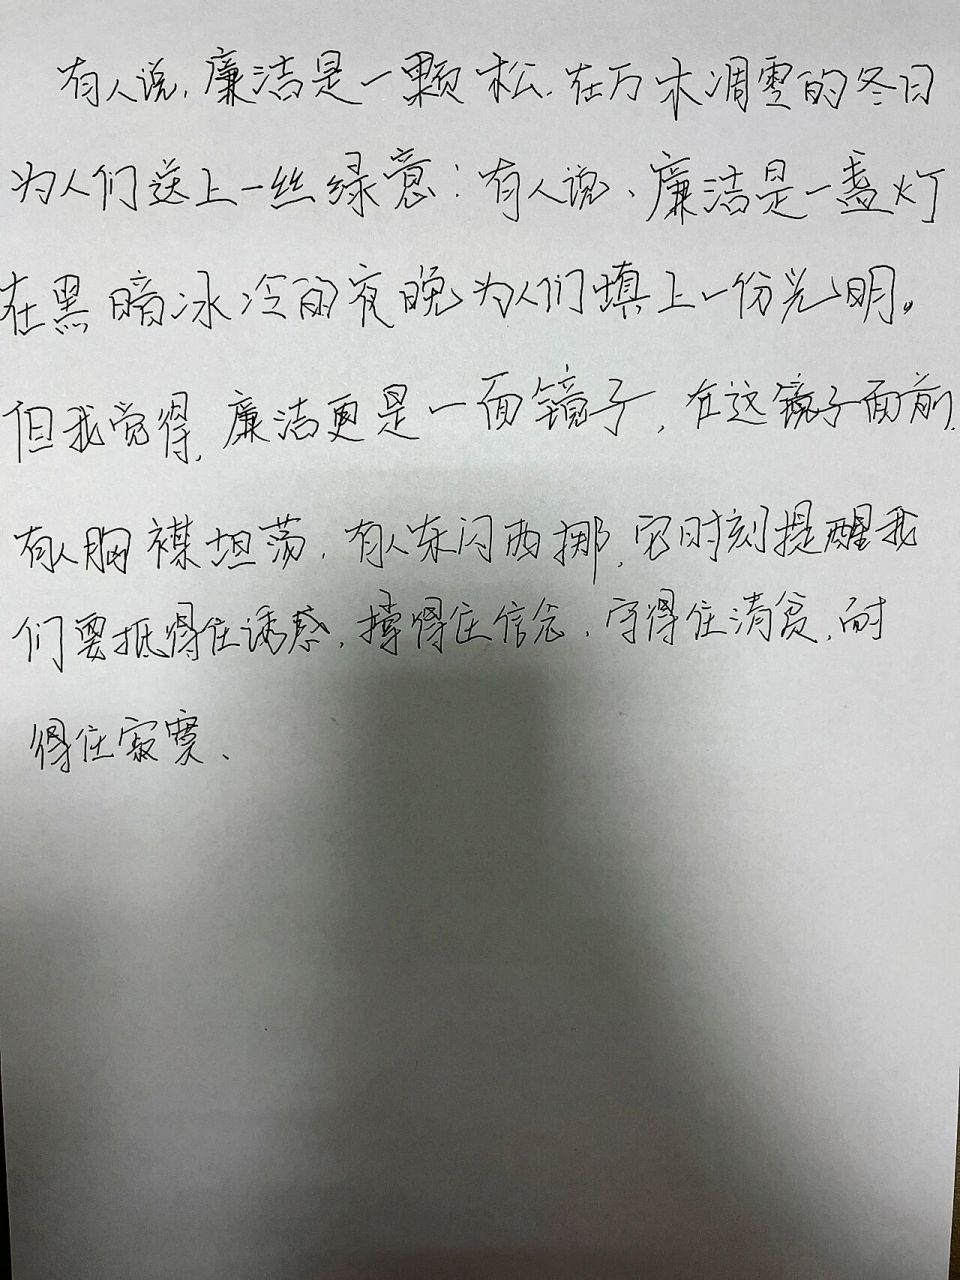 有人说，廉洁是一颗松，在万木凋零的冬日
为人们送上一丝绿意；有人说、廉洁是一盏灯
在黑暗冰冷的夜晚为人们填上一份光明。
但我觉得，廉洁更是一面镜子，在这镜子面前，
有人胸襟坦荡，有人东闪西挪，它时刻提醒我
们要抵得住诱惑，撑得住信念，守得住清贫，耐
得住寂寞、